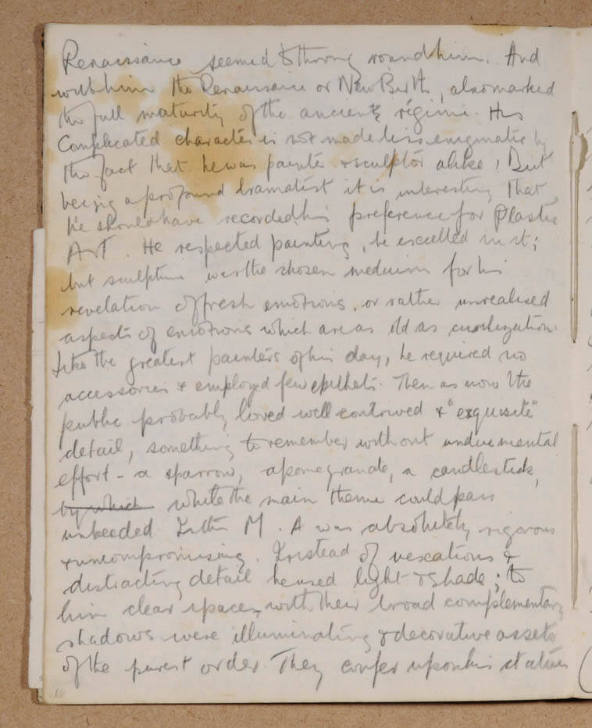 Renaissance seemed to throng round him. And
with him the Renaissance or New Birth, also marked
the full maturity of the ancient régime. His
complicated character is not made less enigmatic by
the fact that he was painter & sculptor alike, But
being a profound dramatist it is interesting that
he should have recorded his preference for Plastic
Art. He respected painting, he excelled in it;
but sculpture was the chosen medium for his
revelation of fresh emotions, or rather unrealised
aspects of emotions which are as old as civilization.
Like the greatest painters of his day, he required no
accessories & employed few epithets. Then as now the
public probably loved well contrived & "exquisite"
detail, something to remember without undue mental
effort - a sparrow, a pomegranate, a candlestick,
by which while the main theme could pass
unheeded. In this M. A was absolutely rigorous
& uncompromising. Instead of vexatious &
distracting detail he used light & shade; to
him clear spaces with their broad complementary
shadows were illuminating & decorative assets
of the purest order. They confer upon his statues